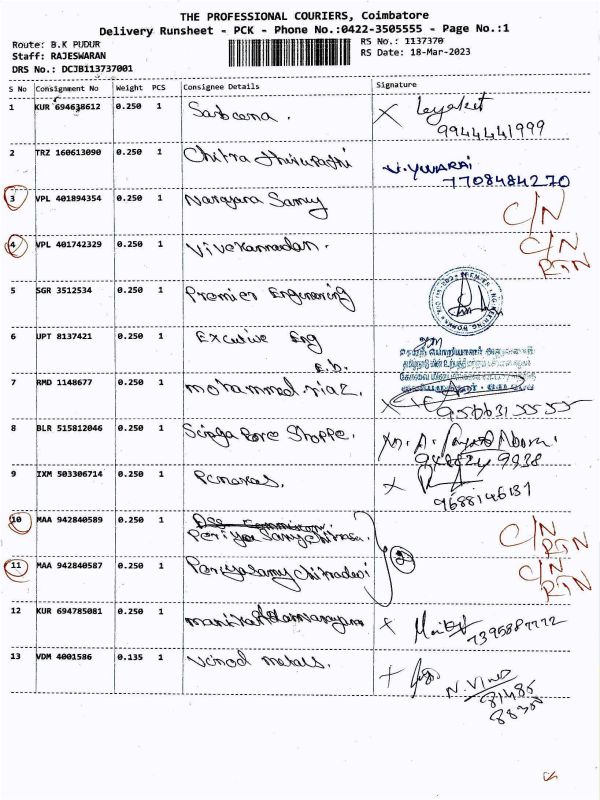 THE PROFESSIONAL COURIERS, Coimbatore
Delivery Runsheet - PCK - Phone No.:0422-3505555 - Page No.:1
Route: B.K PUDUR
RS No.: 1137370
Staff: RAJESWARAN
RS Date: 18-Mar-2023
DRS No.: DCJB113737001
S No Consignment No Weight PCS Consignee Details Signature
1 KUR 694638612 0.250 1 Sabeena .
9944441999
2 TRZ 160613090 0.250 1 Chitra V. YUVARAJ
7708484270
3 VPL 401894354 0.250 1 Narayana Samy C/N
4 VPL 401742329 0.250 1 Vivekanandan. C/N
RTN
5 SGR 3512534 0.250 1 Premier Engineering
6 UPT 8137421 0.250 1 Excutive Eng
E.b.
7 RMD 1148677 0.250 1 mohammed riaz.
9566315555
8 BLR 515812046 0.250 1 Singa Pore Shoppe.
9 IXM 503306714 0.250 1
9688146131
10 MAA 942840589 0.250 1 Periya Samy C/N
RTN
11 MAA 942840587 0.250 1 Periyasamy Chitradevi 2 C/N
RTN
12 KUR 694785081 0.250 1
13 VDM 4001586 0.135 1 Vinod metals.